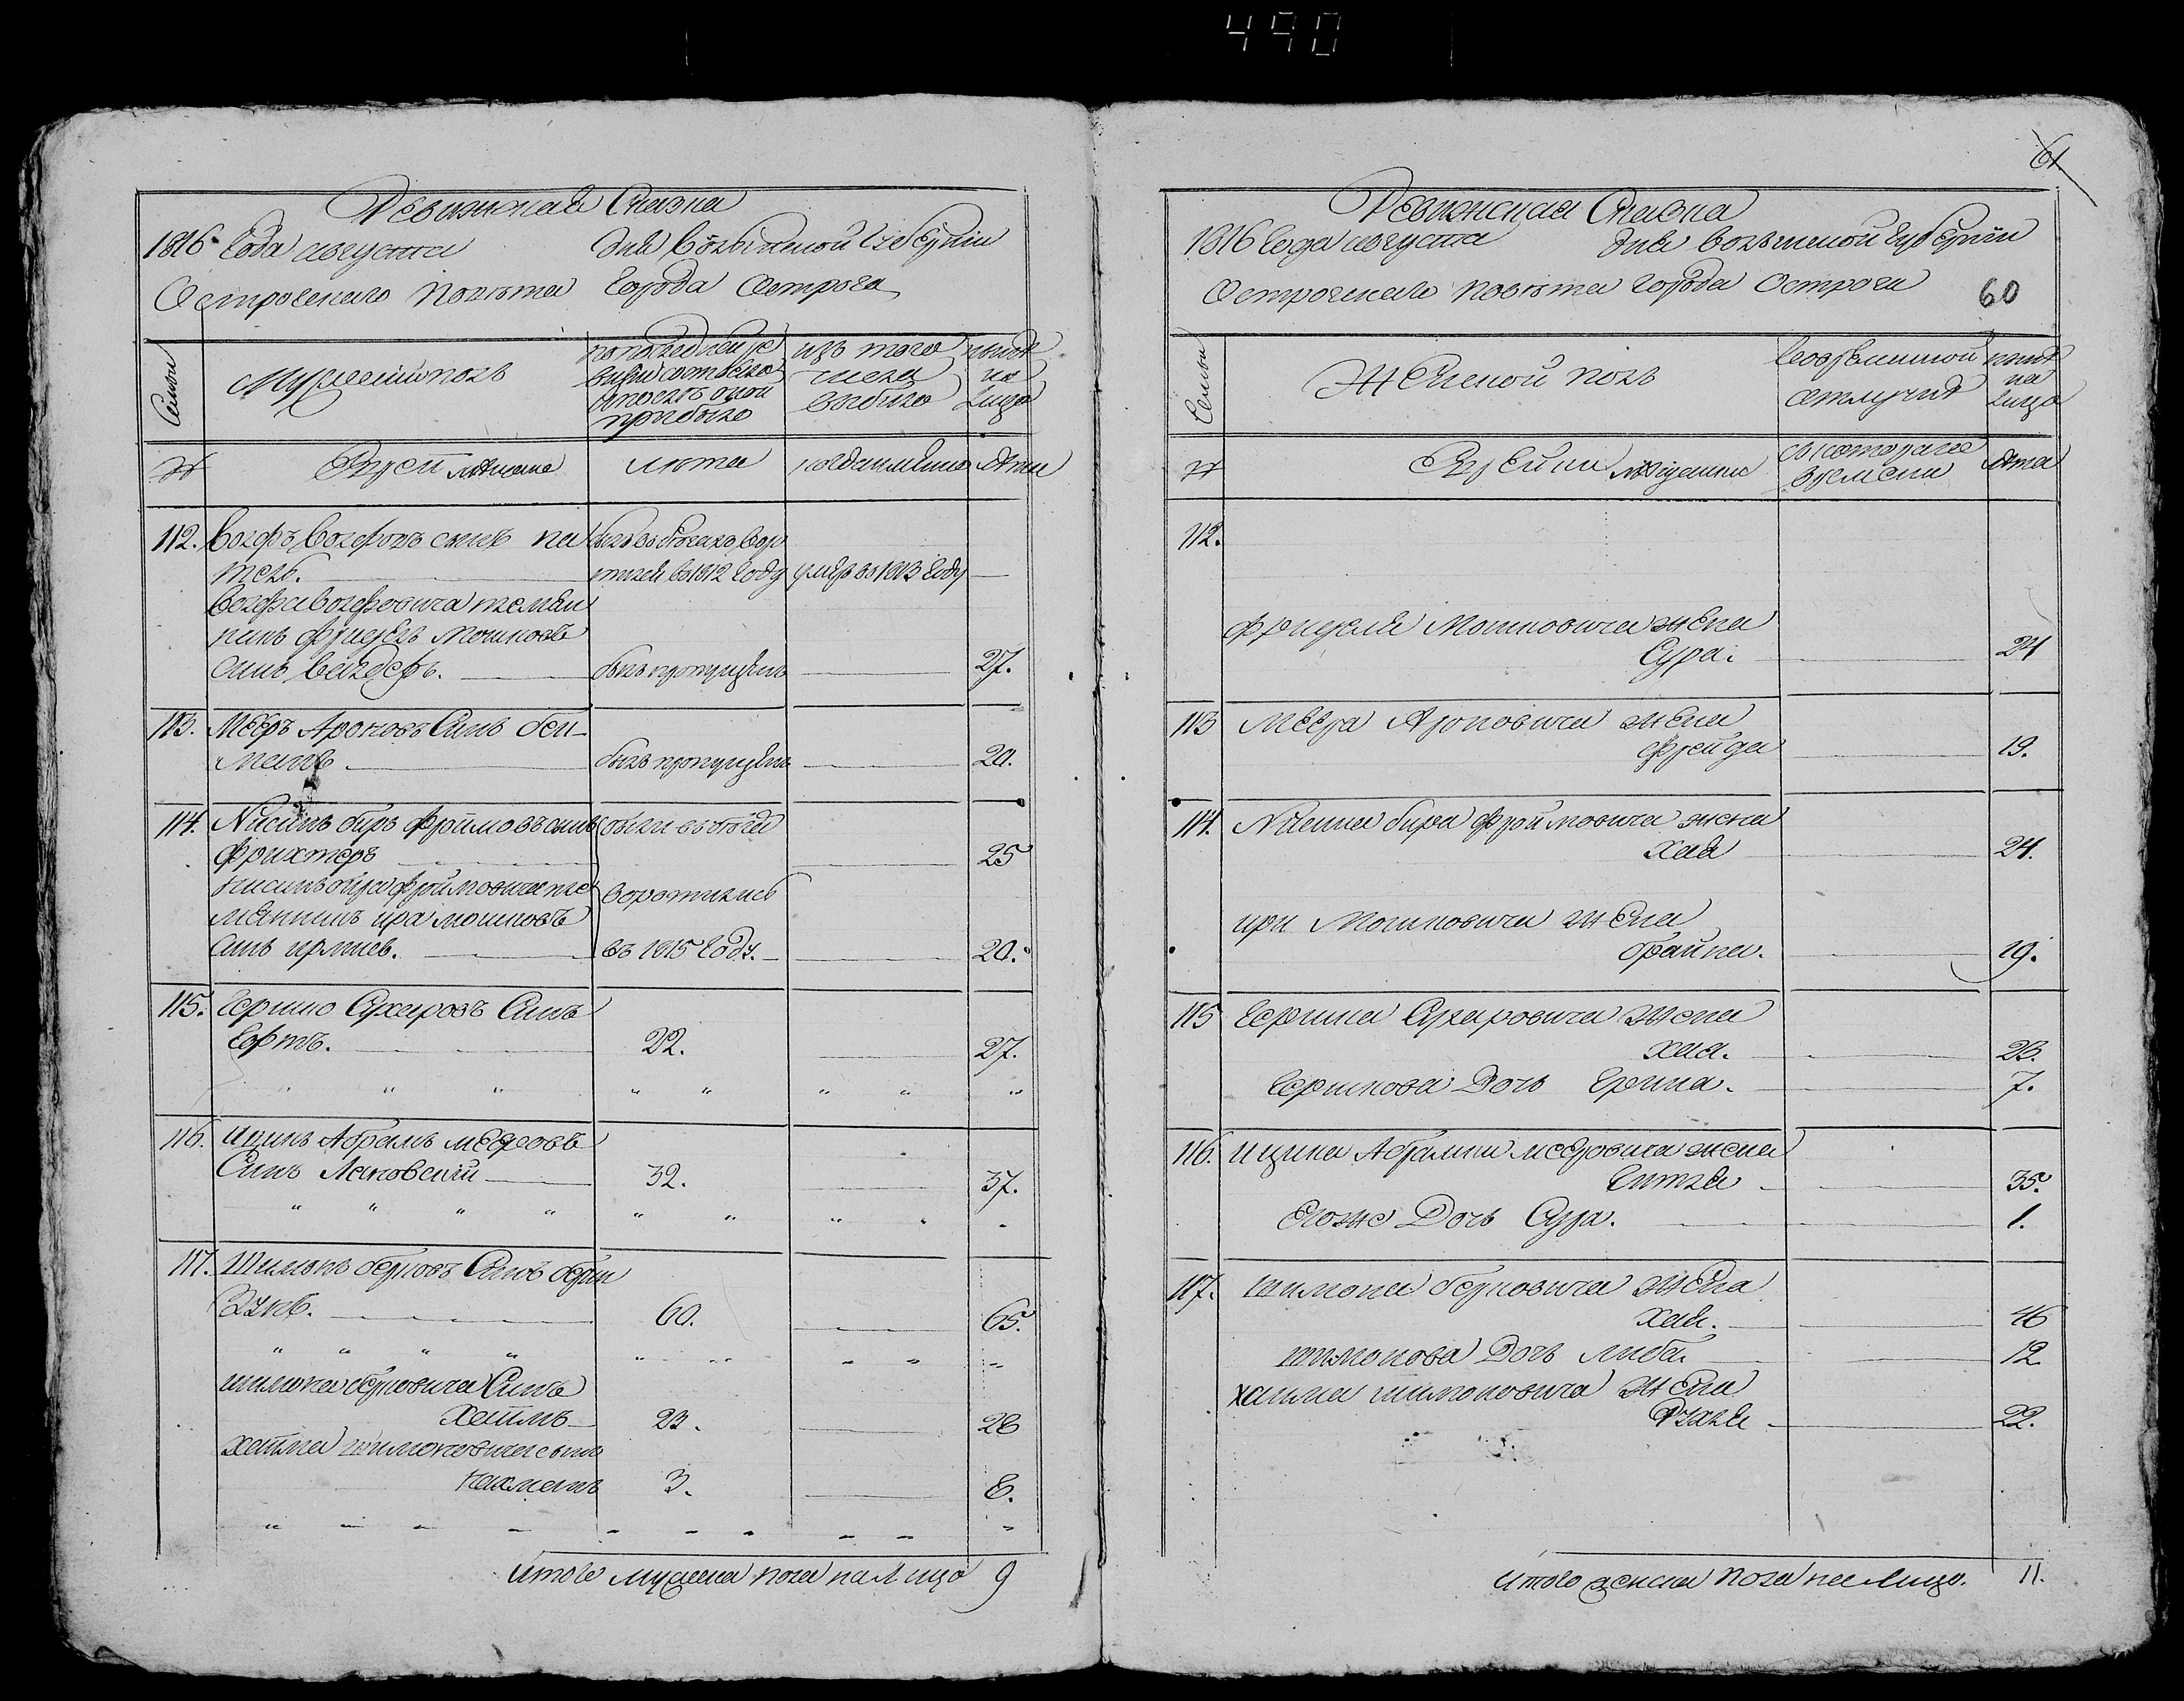 490
Ревижская Сказка
1816 Года августа дня волынской губернии
Острогского повѣта города Острога
Семьи
Мужеский полъ
по последней ре
визии состояло
и после оной
прибыло
изъ того
числа
выбыло
ныне
на
лицо
№
Евреи мѣщане
лѣта
когда именно
лѣта
112. Волфъ Волфовъ сынъ па
тель.
былъ въ бегахъ вор
тился въ 1812 году
умеръ въ 1813 году
Волфа Волфовича племян
никъ фридель мошковъ
синъ валдефъ.
былъ пропущенъ
27.
113. Мееръ Ароновъ Синъ бен
манъ
былъ пропущенъ
20.
114. Нисинъ биръ фроймовъ синъ
фрихтеръ
были въ бѣгах
25
Нисинъ бира фроймовича пле
мянникъ ира мошковъ
синъ ирлихъ.
воротились
въ 1815 Году.
20.
115. Гершко Сухаровъ Синъ
Гофтъ.
22.
27.
116. Ицикъ Абрамъ мееровъ
Синъ Лановский
32.
37.
117. Шимонъ берковъ Синъ берин
зукъ.
60.
65.
шимона берковича Синъ
Хаимъ
23.
28
хаима шимоновича сынъ
нахманъ
3.
8.
Итого мужеска пола на лицо 9
61
Ревижская Сказка
1816 Года августа дня волынской губернии
Острогского повѣта города Острога
60
Семьи
Женской полъ
во временной
отлучкѣ
ныне
на
лицо
№
Еврейки мѣщанки
съ котораго
времени
лѣта
112.
фриделя Мошковича жена
Сура.
24
113 Меера Ароновича жена
фрейда
19.
114. Нисина бира фроймовича жена
хая
24.
ири Мошковича жена
брайна.
19.
115 Гершка Сухаровича жена
хая.
23.
Гершкова Дочь Ерина.
7.
116. Ицика Абрама мееровича жена
Гитля
35.
Егоже Дочь Сура.
1.
117. шимона берковича жена
хая.
46
шимонова Дочь либа.
12.
хаима шимоновича жена
Рухля
22.
Итого женска пола на лицо. 11.